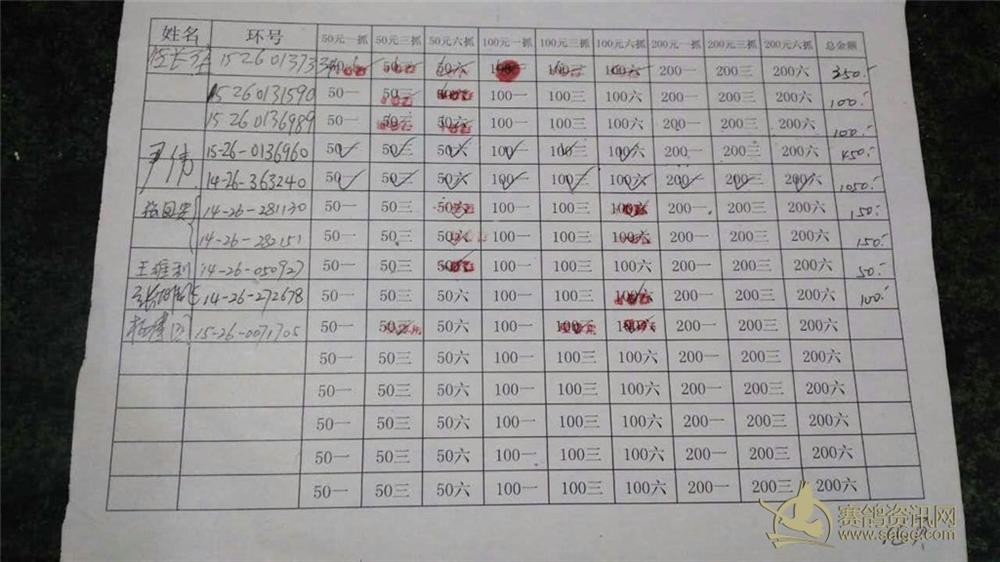 姓名 环号 50元一抓 50元三抓 50元六抓 100元一抓 100元三抓 100元六抓 200元一抓 200元三抓 200元六抓 总金额
15260137333 50一 50三 50六 100一 100三 100六 200一 200三 200六 350.-
15260131590 50一 50三 50六 100一 100三 100六 200一 200三 200六 100.-
15260136989 50一 50三 50六 100一 100三 100六 200一 200三 200六 100.-
尹伟 15-26-0136960 50一 50三 50六 100一 100三 100六 200一 200三 200六 450.-
14-26-363240 50一 50三 50六 100一 100三 100六 200一 200三 200六 1050.-
14-26-281130 50一 50三 50六 100一 100三 100六 200一 200三 200六 150.-
14-26-282151 50一 50三 50六 100一 100三 100六 200一 200三 200六 150.-
王维利 14-26-050927 50一 50三 50六 100一 100三 100六 200一 200三 200六 50.-
14-26-272678 50一 50三 50六 100一 100三 100六 200一 200三 200六 100.-
15-26-0071705 50一 50三 50六 100一 100三 100六 200一 200三 200六
50一 50三 50六 100一 100三 100六 200一 200三 200六
50一 50三 50六 100一 100三 100六 200一 200三 200六
50一 50三 50六 100一 100三 100六 200一 200三 200六
50一 50三 50六 100一 100三 100六 200一 200三 200六
50一 50三 50六 100一 100三 100六 200一 200三 200六
赛鸽资讯网
www.saige.com